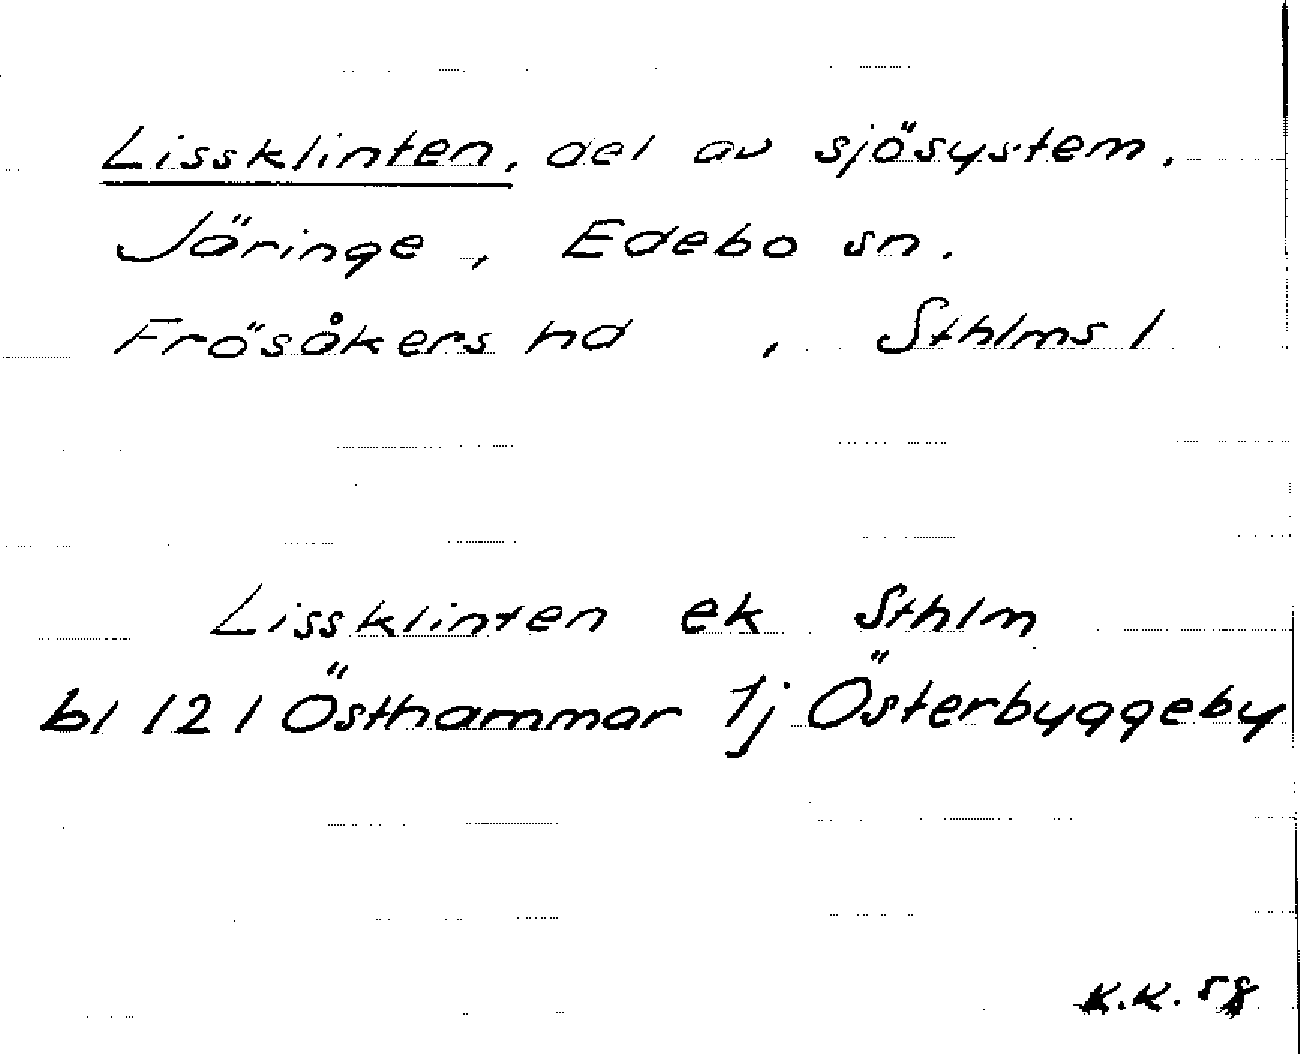 Lissklinten, del av sjösystem,
Järinge, Edebo sn.
Frösåkers hd, Sthlms l
Lissklinten ek Sthlm
bl 121 Östhammar 1j Österbyggeby
K.K. 58